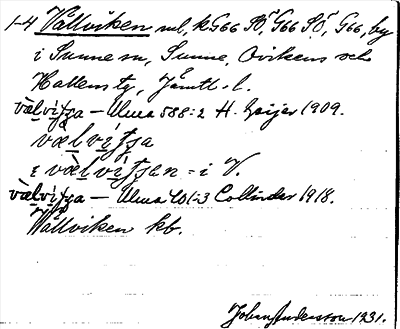 1-4 Vallviken ml, k G66 SÖ, G66 SÖ, G66, by
i Sunne sn, Sunne, Ovikens och
Hallens tg, Jämtl. l.
vælvitʃa – Ulma 588:2 H. Geijer 1909.
vælvitʃa
i vælvitʃan = i V.
vælvitʃa – Ulma 401:3 Collinder 1918.
Wallviken kb.
Johan Andersson 1931.